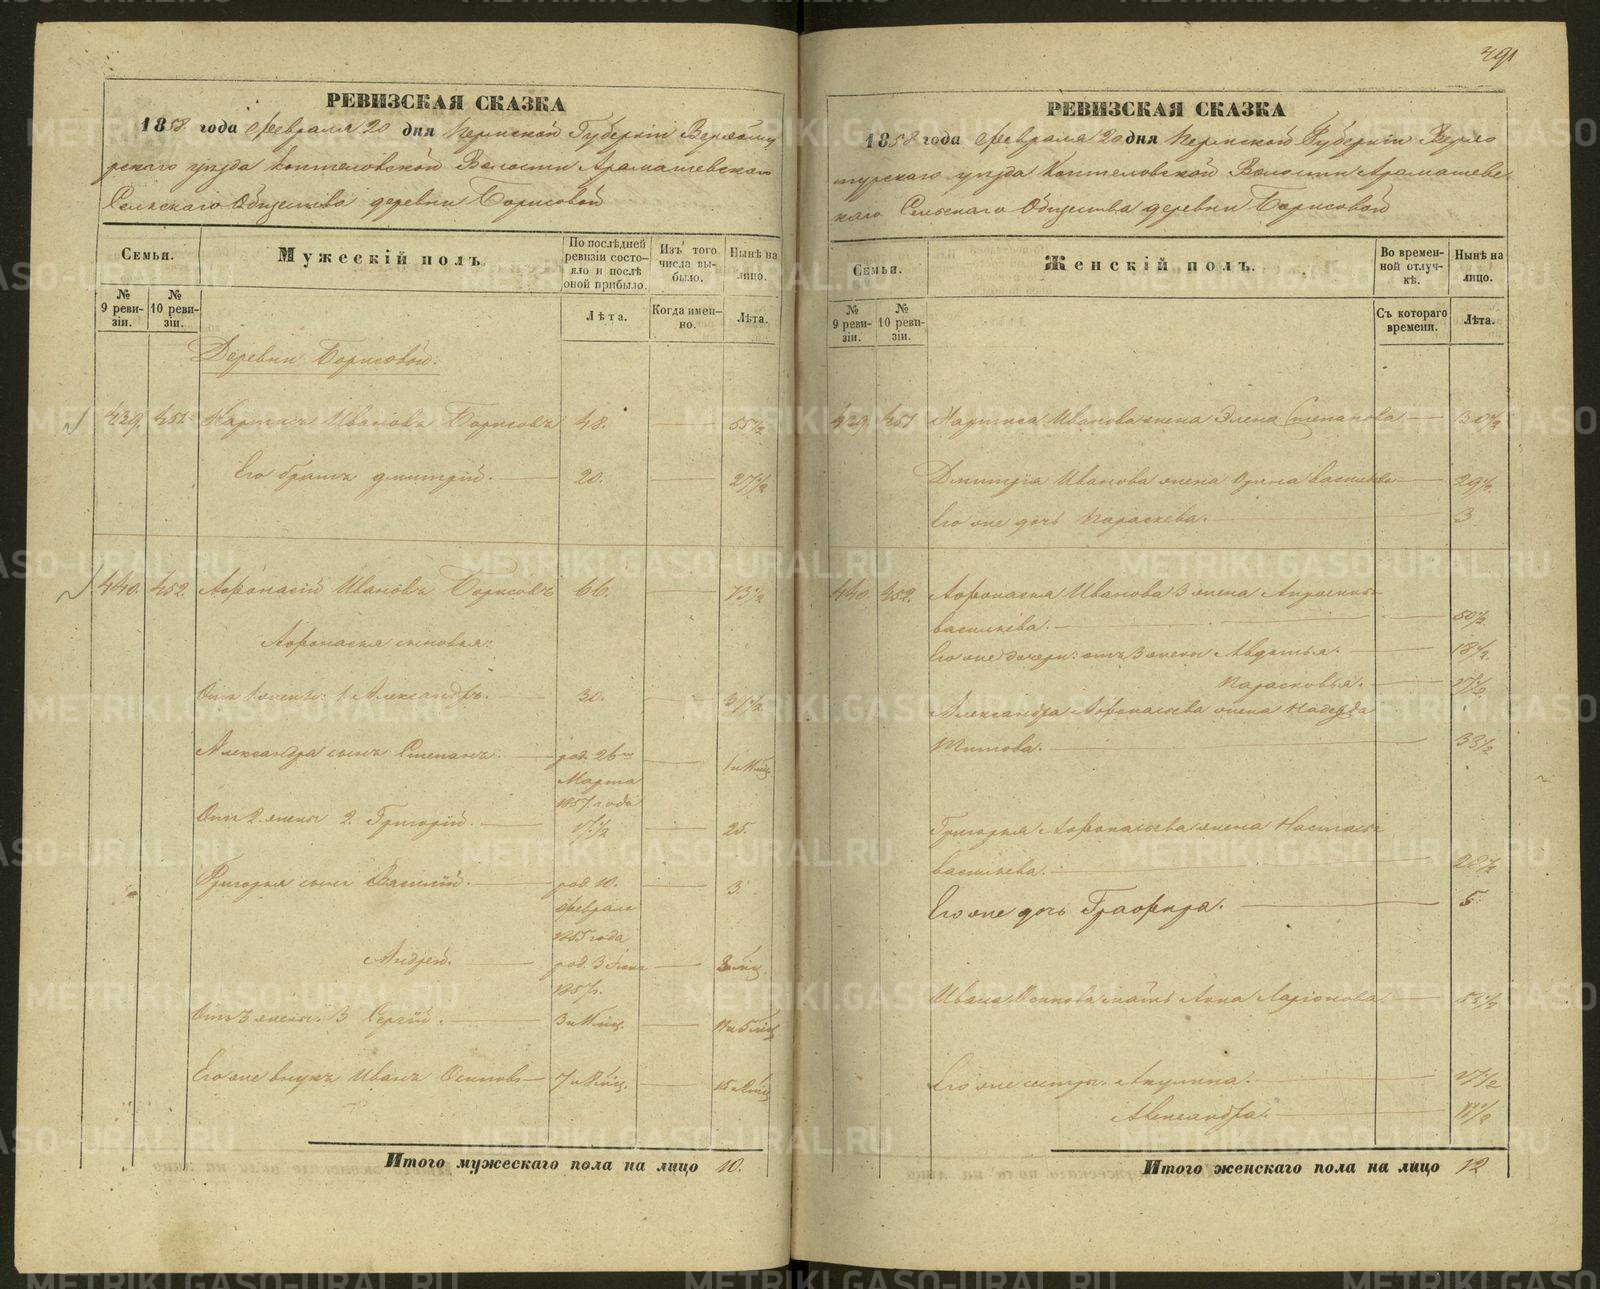 491
РЕВИЗСКАЯ СКАЗКА
1858 года Февраля 20 дня Пермской Губерніи Верхоту
рскаго уезда Коптеловской Волости Арамашевскаго
Сельскаго Общества деревни Борисовой
Семьи.
Мужескій полъ.
По послѣдней ревизіи состояло и послѣ оной прибыло.
Изъ того числа выбыло.
Нынѣ на лицо.
№ 9 ревизіи.
№ 10 ревизіи.
Лѣта.
Когда именно.
Лѣта.
Деревни Борисовой.
439. 451. Иванов Борисовъ 48. 55 1/2
Его братъ Дмитрій. 20. 27 1/2
440. 452. Афонасій Ивановъ Борисовъ 66. 73 1/2
Афонасья сыновья:
Отъ 1 жены: 1 Александръ. 30. 37 1/2
Александра сынъ Степанъ. род. 26го Марта 1857. года
Отъ 2. жены 2. Григорій. 17 1/2 25.
Григорья сынъ Василій. род. 10. Февраля 1855 года 3.
Андрей. род. 3 1857.
Отъ 3 жены. 3 Сергій.
Его же внукъ Иванъ Осиповъ
Итого мужескаго пола на лицо 10.
РЕВИЗСКАЯ СКАЗКА
1858 года Февраля 20 дня Пермской Губерніи Верхо
турскаго уезда Коптеловской Волости Арамашевс
каго Сельскаго Общества деревни Борисовой
Семьи.
Женскій полъ.
Во временной отлучкѣ.
Нынѣ на лицо.
№ 9 ревизіи.
№ 10 ревизіи.
Съ котораго времени.
Лѣта.
439. 451. Иванова жена Елена Степанова 30 1/2
Дмитрія Иванова жена васильева 29 1/2
Его же дочь Параскева. 3
440. 452. Афонасья Иванова 3 жена
васильева. 50 1/2
Его же дочери: отъ 3 жены Авдотья. 18 1/2
Парасковья. 17 1/2
Александра Афонасьева жена Надежда
Титова. 33 1/2
Григорья Афонасьева жена Настасья
васильева. 28 1/2
Его же дочь Графира. 5.
Ивана Осипова мать Анна Ларіонова 53 1/2
Его же сестры. Акулина. 17 1/2
Александра. 11 1/2
Итого женскаго пола на лицо 12
METRIKI.GASO-URAL.RU